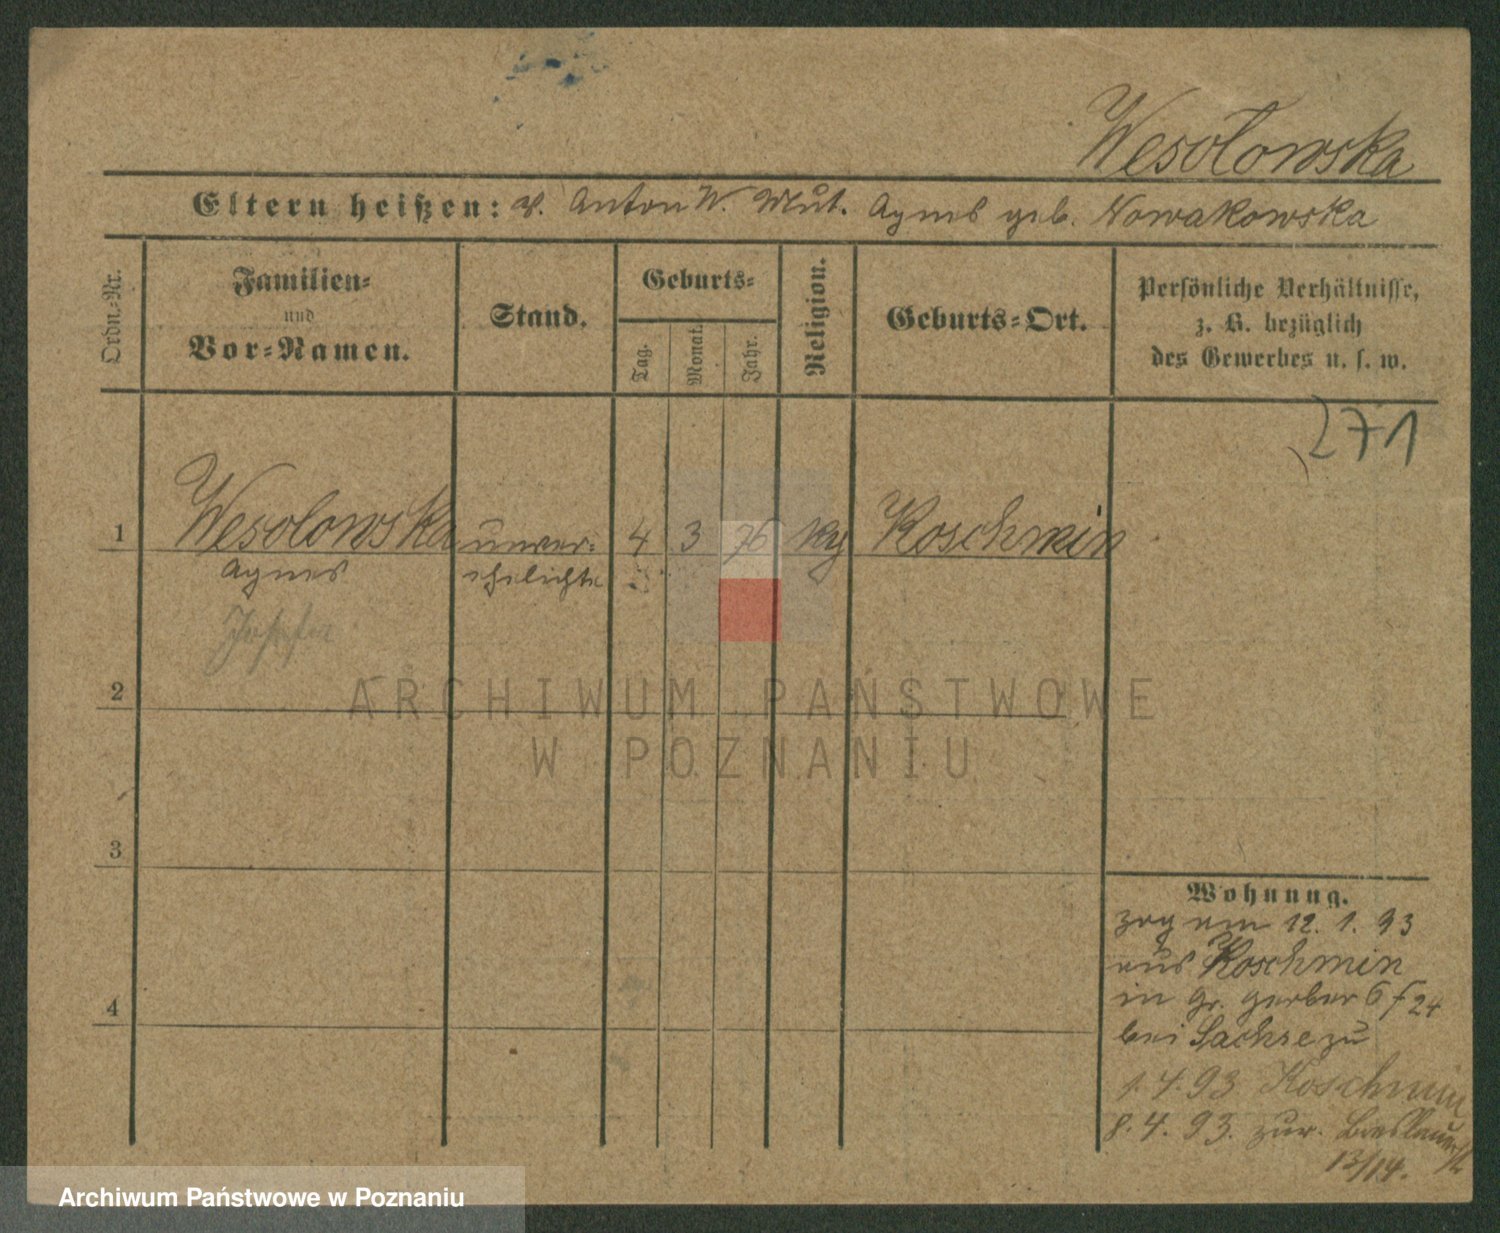 Wesołowska
Eltern heißen: V. Anton W. Mut. Agnes geb. Nowakowska
Ordn.-Nr.
Familien-
und
Vor-Namen.
Stand.
Geburts-
Tag.
Monat.
Jahr.
Religion.
Geburts-Ort.
Persönliche Verhältnisse,
z. B. bezüglich
des Gewerbes u. s. w.
271
1 Wesolowska unver- 4 3 76 kg Koschmin
Agnes ehelichte
Josefa
2
3
4
Wohnung.
zog am 12. 1. 93
aus Koschmin
in Gr. Gerber 24
bei Sachse zu
1.4.93 Koschmin
8.4.93. zur. Breslauerst
13/14.
ARCHIWUM PAŃSTWOWE
W POZNANIU
Archiwum Państwowe w Poznaniu